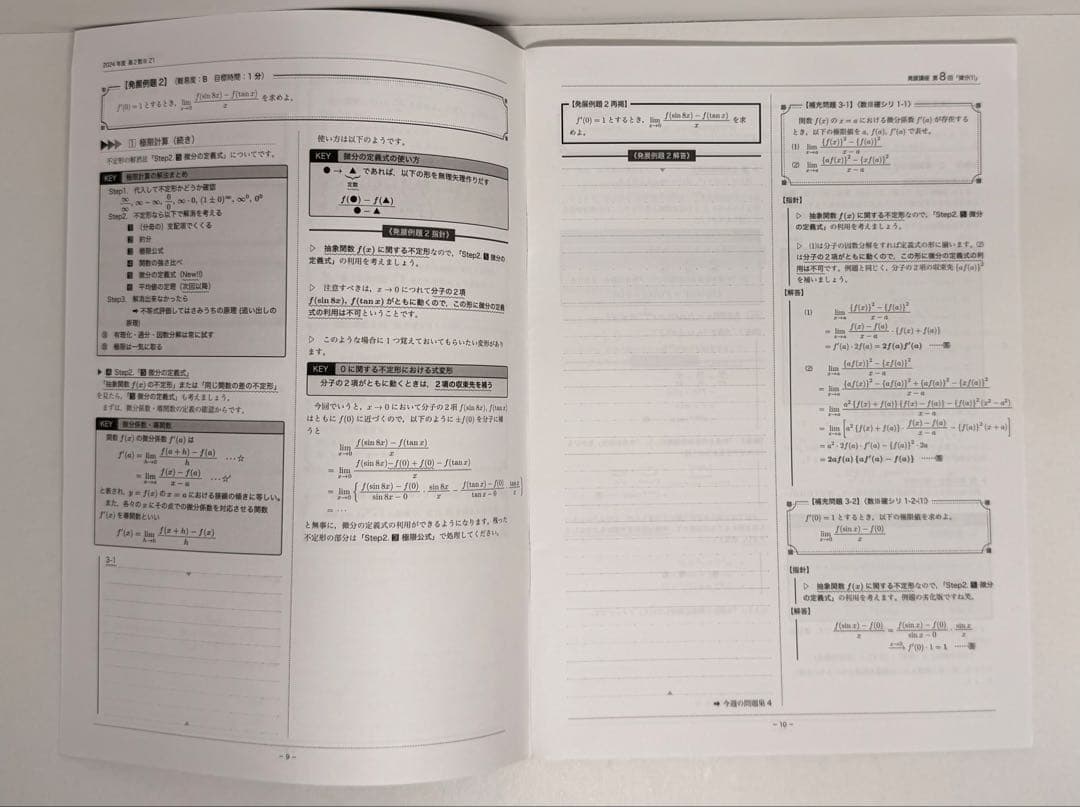 2024年度 高2数α Z1
【発展例題2】(難易度:B 目標時間:1分)
f'(0)=1とするとき, lim_{x→0} (f(sin8x)−f(tanx))/x を求めよ。
① 極限計算(続き)
不定形の解消法「Step2. 5 微分の定義式」についてです。
KEY 極限計算の解法まとめ
Step1. 代入して不定形かどうか確認
∞/∞, ∞−∞, 0/0, ∞・0, (1±0)^∞, ∞^0, 0^0
Step2. 不定形なら以下で解消を考える
1 (分母の)支配項でくくる
2 約分
3 極限公式
4 関数の強さ比べ
5 微分の定義式(New!!)
6 平均値の定理(次回以降)
Step3. 解消出来なかったら
➡ 不等式評価してはさみうちの原理(追い出しの
原理)
有理化・通分・因数分解は常に試す
極限は一気に取る
Step2.「5 微分の定義式」
「抽象関数 f(x) の不定形」または「同じ関数の差の不定形」
を見たら,「5 微分の定義式」も考えましょう。
まずは, 微分係数・導関数の定義の確認からです。
KEY 微分係数・導関数
関数 f(x) の微分係数 f'(a) は
f'(a) = lim_{h→0} (f(a+h)−f(a))/h …☆
= lim_{x→a} (f(x)−f(a))/(x−a) …☆'
と表され, y=f(x) の x=a における接線の傾きに等しい。
また, 各々の x にその点での微分係数を対応させる関数
f'(x) を導関数といい
f'(x) = lim_{h→0} (f(x+h)−f(x))/h
3-1
使い方は以下のようです。
KEY 微分の定義式の使い方
● → ▲ であれば, 以下の形を無理矢理作りだす
定数
(f(●)−f(▲))/(●−▲)
《発展例題2指針》
▷ 抽象関数 f(x) に関する不定形なので,「Step2. 5 微分の
定義式」の利用を考えましょう。
▷ 注意すべきは, x→0 につれて分子の2項
f(sin8x), f(tanx) がともに動くので, この形に微分の定義
式の利用は不可ということです。
▷ このような場合に1つ覚えておいてもらいたい変形があり
ます。
KEY 0に関する不定形における式変形
分子の2項がともに動くときは, 2項の収束先を補う
今回でいうと, x→0 において分子の2項 f(sin8x), f(tanx)
はともに f(0) に近づくので, 以下のように ±f(0) を分子に補
うと
lim_{x→0} (f(sin8x)−f(tanx))/x
= lim_{x→0} (f(sin8x)−f(0)+f(0)−f(tanx))/x
= lim_{x→0} { (f(sin8x)−f(0))/(sin8x−0) ・ sin8x/x − (f(tanx)−f(0))/(tanx−0) ・ tanx/x }
= …
と無事に, 微分の定義式の利用ができるようになります。残った
不定形の部分は「Step2. 3 極限公式」で処理してください。
− 9 −
発展講座 第8回「微分(1)」
【発展例題2再掲】
f'(0)=1とするとき, lim_{x→0} (f(sin8x)−f(tanx))/x を求
めよ。
《発展例題2解答》
➡ 今週の問題集4
【補充問題3-1】(数Ⅲ確シリ1-1)
関数 f(x) の x=a における微分係数 f'(a) が存在する
とき, 以下の極限値を a, f(a), f'(a) で表せ。
(1) lim_{x→a} ({f(x)}²−{f(a)}²)/(x−a)
(2) lim_{x→a} ({af(x)}²−{xf(a)}²)/(x−a)
【指針】
▷ 抽象関数 f(x) に関する不定形なので,「Step2. 5 微分
の定義式」の利用を考えましょう。
▷ (1)は分子の因数分解をすれば定義式の形に揃います。(2)
は分子の2項がともに動くので, この形に微分の定義式の利
用は不可です。例題と同じく, 分子の2項の収束先 {af(a)}²
を補いましょう。
【解答】
(1) lim_{x→a} ({f(x)}²−{f(a)}²)/(x−a)
= lim_{x→a} (f(x)−f(a))/(x−a) ・{f(x)+f(a)}
= f'(a)・2f(a) = 2f(a)f'(a) ……答
(2) lim_{x→a} ({af(x)}²−{xf(a)}²)/(x−a)
= lim_{x→a} ({af(x)}²−{af(a)}²+{af(a)}²−{xf(a)}²)/(x−a)
= lim_{x→a} (a²{f(x)+f(a)}{f(x)−f(a)}−{f(a)}²(x²−a²))/(x−a)
= lim_{x→a} [a²{f(x)+f(a)}・(f(x)−f(a))/(x−a) −{f(a)}²(x+a)]
= a²・2f(a)・f'(a)−{f(a)}²・2a
= 2af(a){af'(a)−f(a)} ……答
【補充問題3-2】(数Ⅲ確シリ1-2-(1))
f'(0)=1とするとき, 以下の極限値を求めよ。
lim_{x→0} (f(sinx)−f(0))/x
【指針】
▷ 抽象関数 f(x) に関する不定形なので,「Step2. 5 微分
の定義式」の利用を考えます。例題の劣化版ですね笑。
【解答】
(f(sinx)−f(0))/x = (f(sinx)−f(0))/(sinx−0) ・ sinx/x
→(x→0) f'(0)・1=1 ……答
− 10 −